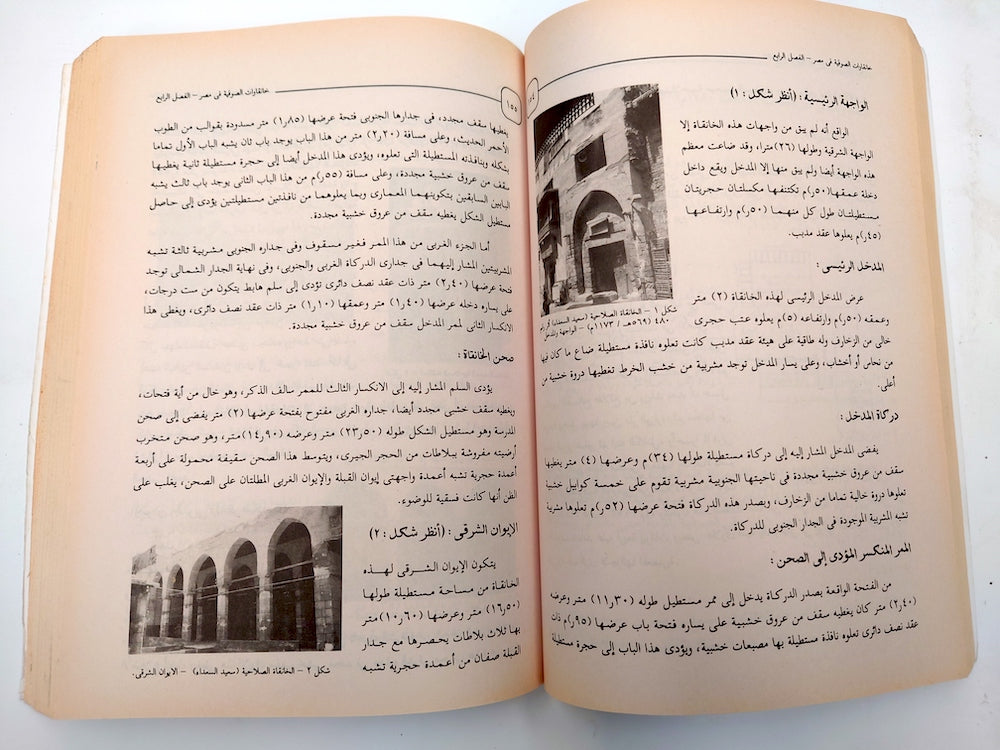 خانقاوات الصوفية فى مصر – الفصل الرابع
الواجهة الرئيسية : (أنظر شكل : ١)
الواقع أنه لم يبق من واجهات هذه الخانقاة إلا
الواجهة الشرقية وطولها (٢٦) مترا، وقد ضاعت معظم
هذه الواجهة أيضا ولم يبق منها إلا المدخل ويقع داخل
دخلة عمقها (٥٠ر)م تكتنفها مكسلتان حجريتان
مستطيلتان طول كل منهما (٥٠ر)م وارتفاعها
(٤٥ر)م يعلوها عقد مدبب.
المدخل الرئيسى :
عرض المدخل الرئيسى لهذه الخانقاة (٢) متر
وعمقه (٥٠ر)م وارتفاعه (٥)م يعلوه عتب حجرى
خالى من الزخارف وله طاقية على هيئة عقد مدبب كانت تعلوه نافذة مستطيلة ضاع ما كان فيها
من نحاس أو أخشاب، وعلى يسار المدخل توجد مشربية من خشب الخرط تغطيها دروة خشبية من
أعلى.
شكل ١ – الخانقاة الصلاحية (سعيد السعداء)
٤٨٠ (٥٦٩هـ / ١١٧٣م) – الواجهة والمدخل
دركاة المدخل :
يفضى المدخل المشار إليه إلى دركاة مستطيلة طولها (٣٤)م وعرضها (٤) متر يغطيها
سقف من عروق خشبية مجددة فى ناحيتها الجنوبية مشربية تقوم على خمسة كوابيل خشبية
تعلوها دروة خالية تماما من الزخارف، وبصدر هذه الدركاة فتحة عرضها (٥٢ر)م تعلوها مشربة
تشبه المشربية الموجودة فى الجدار الجنوبى للدركاة.
الممر المنكسر المؤدى إلى الصحن :
من الفتحة الواقعة بصدر الدركاة يدخل إلى ممر مستطيل طوله (٣٠ر١١) متر وعرضه
(٤٠ر٢) متر كان يغطيه سقف من عروق خشبية على يساره فتحة باب عرضها (٩٥ر)م ذات
عقد نصف دائرى تعلوه نافذة مستطيلة بها مصبعات خشبية، ويؤدى هذا الباب إلى حجرة مستطيلة
خانقاوات الصوفية فى مصر – الفصل الرابع
١٥٥
يغطيها سقف مجدد، فى جدارها الجنوبى فتحة عرضها (٨٥ر١) متر مسدودة بقوالب من الطوب
الأحمر الحديث، وعلى مسافة (٢٠ر٢) متر من هذا الباب يوجد باب ثان يشبه الباب الأول تماما
بشكله وبنافذته المستطيلة التى تعلوه، ويؤدى هذا المدخل أيضا إلى حجرة مستطيلة ثانية يغطيها
سقف من عروق خشبية مجددة، وعلى مسافة (٥٥ر)م من هذا الباب الثانى يوجد باب ثالث يشبه
البابين السابقين بتكوينهما المعمارى وبما يعلوهما من نافذتين مستطيلتين يؤدى إلى حاصل
مستطيل الشكل يغطيه سقف من عروق خشبية مجددة.
أما الجزء الغربى من هذا الممر فغير مسقوف وفى جداره الجنوبى مشربية ثالثة تشبه
المشربيتين المشار إليهما فى جدارى الدركاة الغربى والجنوبى، وفى نهاية الجدار الشمالى توجد
فتحة عرضها (٤٠ر٢) متر ذات عقد نصف دائرى تؤدى إلى سلم هابط يتكون من ست درجات،
على يساره دخله عرضها (٤٠ر١) متر وعمقها (١٠ر١) متر وعقد نصف دائرى، ويغطى هذا
الانكسار الثانى لممر المدخل سقف من عروق خشبية مجددة.
صحن الخانقاة :
يؤدى السلم المشار إليه إلى الانكسار الثالث للممر سالف الذكر، وهو خال من أية فتحات،
ويغطيه سقف خشبى مجدد أيضا، جداره الغربى مفتوح بفتحة عرضها (٢) متر يفضى إلى صحن
المدرسة وهو مستطيل الشكل طوله (٥٠ر٢٣) متر وعرضه (٩٠ر١٤) متر، وهو صحن متخرب
أرضيته مفروشة ببلاطات من الحجر الجيرى، ويتوسط هذا الصحن سقيفة محمولة على أربعة
أعمدة حجرية تشبه أعمدة واجهتى إيوان القبلة والإيوان الغربى المطلتان على الصحن، يغلب على
الظن أنها كانت فسقية للوضوء.
الإيوان الشرقى : (أنظر شكل : ٢)
يتكون الإيوان الشرقى لهذه
الخانقاة من مساحة مستطيلة طولها
(٥٠ر١٦) متر وعرضها (٦٠ر١٠) متر
بها ثلاث بلاطات يحصرها مع جدار
القبلة صفان من أعمدة حجرية تشبه
شكل ٢ – الخانقاة الصلاحية (سعيد السعداء) – الايوان الشرقى.